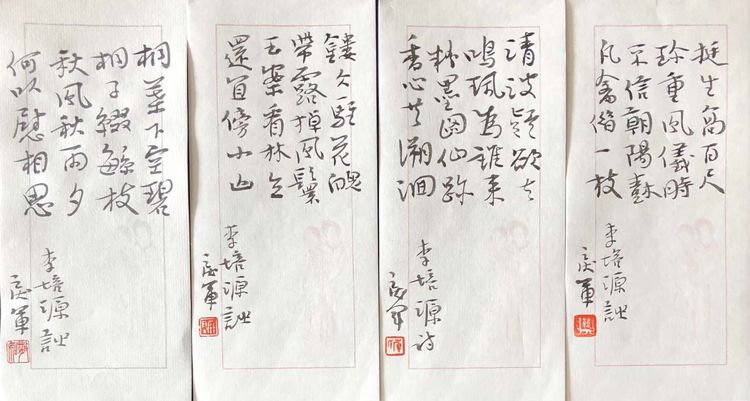 挺生高百尺
珍重鳳儀時
不信朝陽
凡禽借一枝
李培源詩
庆軍
清波疑欲去
鳴珮為誰來
粉墨図仙跡
香心共溯洄
李培源诗
庆軍
久駐花魄
帶露掉風鬟
玉案看林立
還宜傍小山
李培源詩
庆軍
桐葉下空碧
桐子綴繁枝
秋風秋雨夕
何以慰相思
李培源詩
庆軍